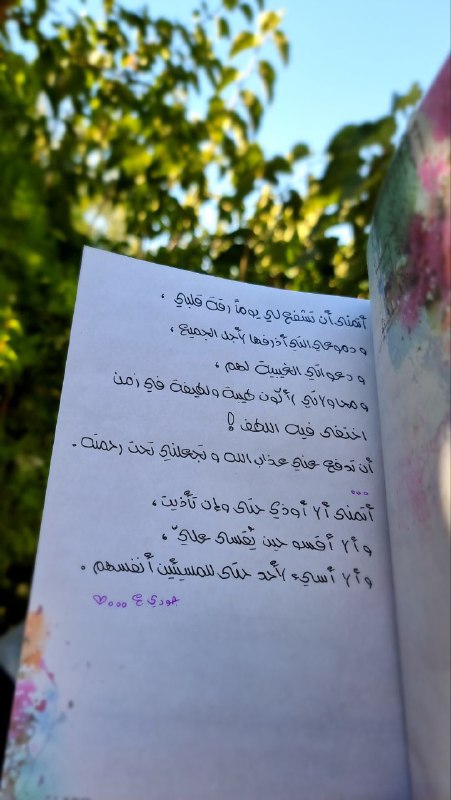 أتمنى أن تشفع لي يوماً رقة قلبي ،
و دموعي التي أذرفها لأجل الجميع ،
و دعواتي الغيبية لهم ،
و محاولاتي لأكون طيبة ولطيفة في زمن
اختفى فيه اللطف !
أن تدفع عني عذاب الله و تجعلني تحت رحمته .
...
أتمنى ألا أوذي حتى وإن تأذيت ،
و ألا أقسو حين يُقسى عليّ ،
و ألا أسيء لأحد حتى للمسيئين أنفسهم .
هودي ع ...♡